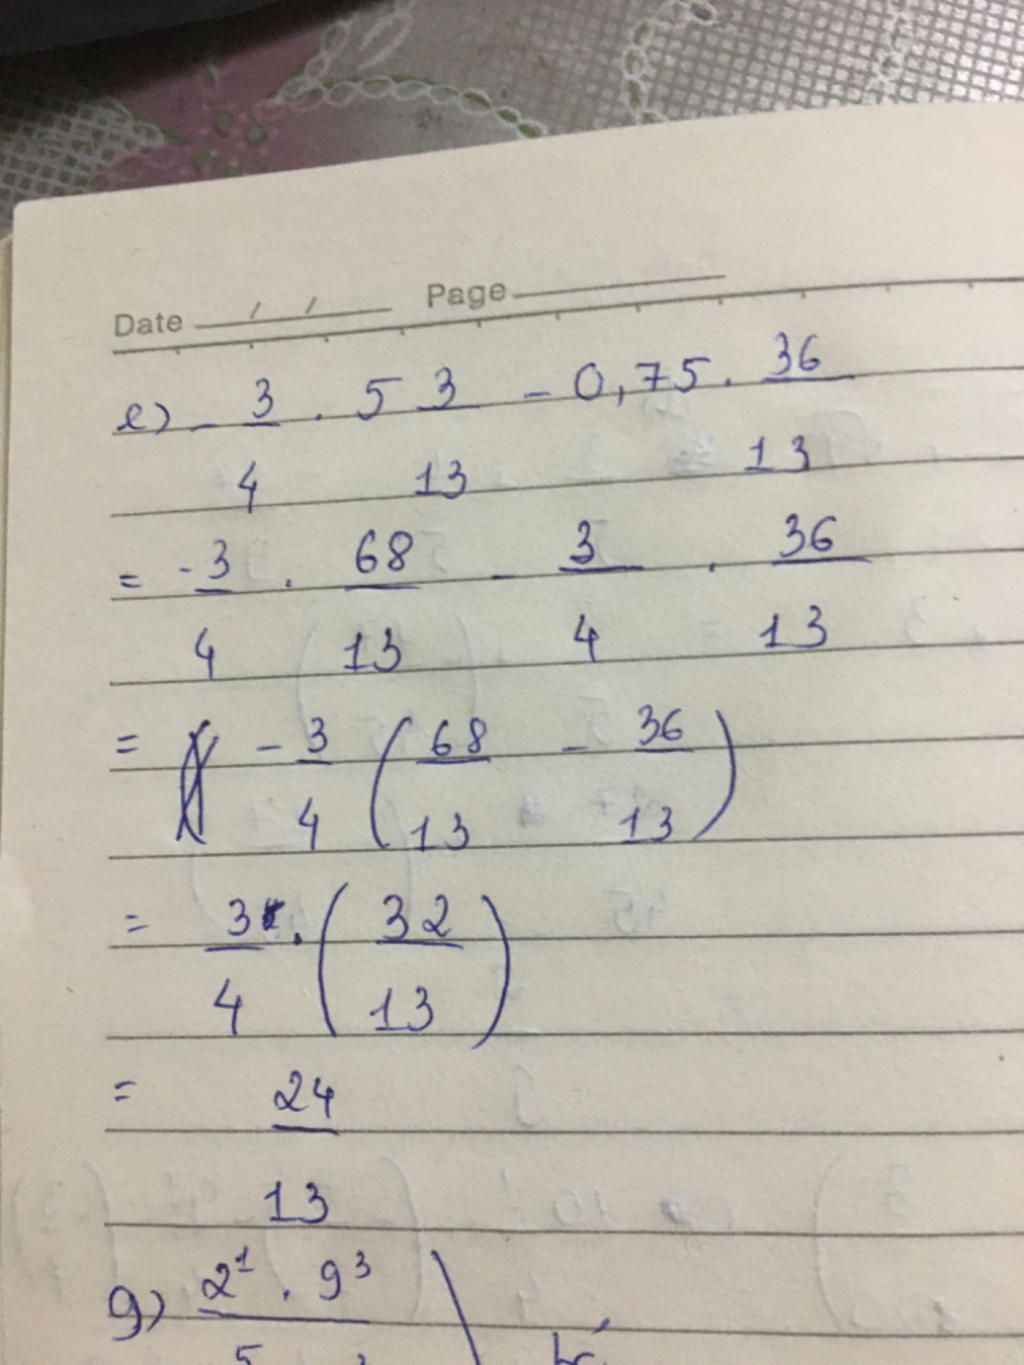 Date / / Page
e) - 3/4 . 5 3/13 - 0,75 . 36/13
= -3/4 . 68/13 - 3/4 . 36/13
= - 3/4 (68/13 - 36/13)
= 3/4 . (32/13)
= 24/13
g) 2¹ . 9³
5